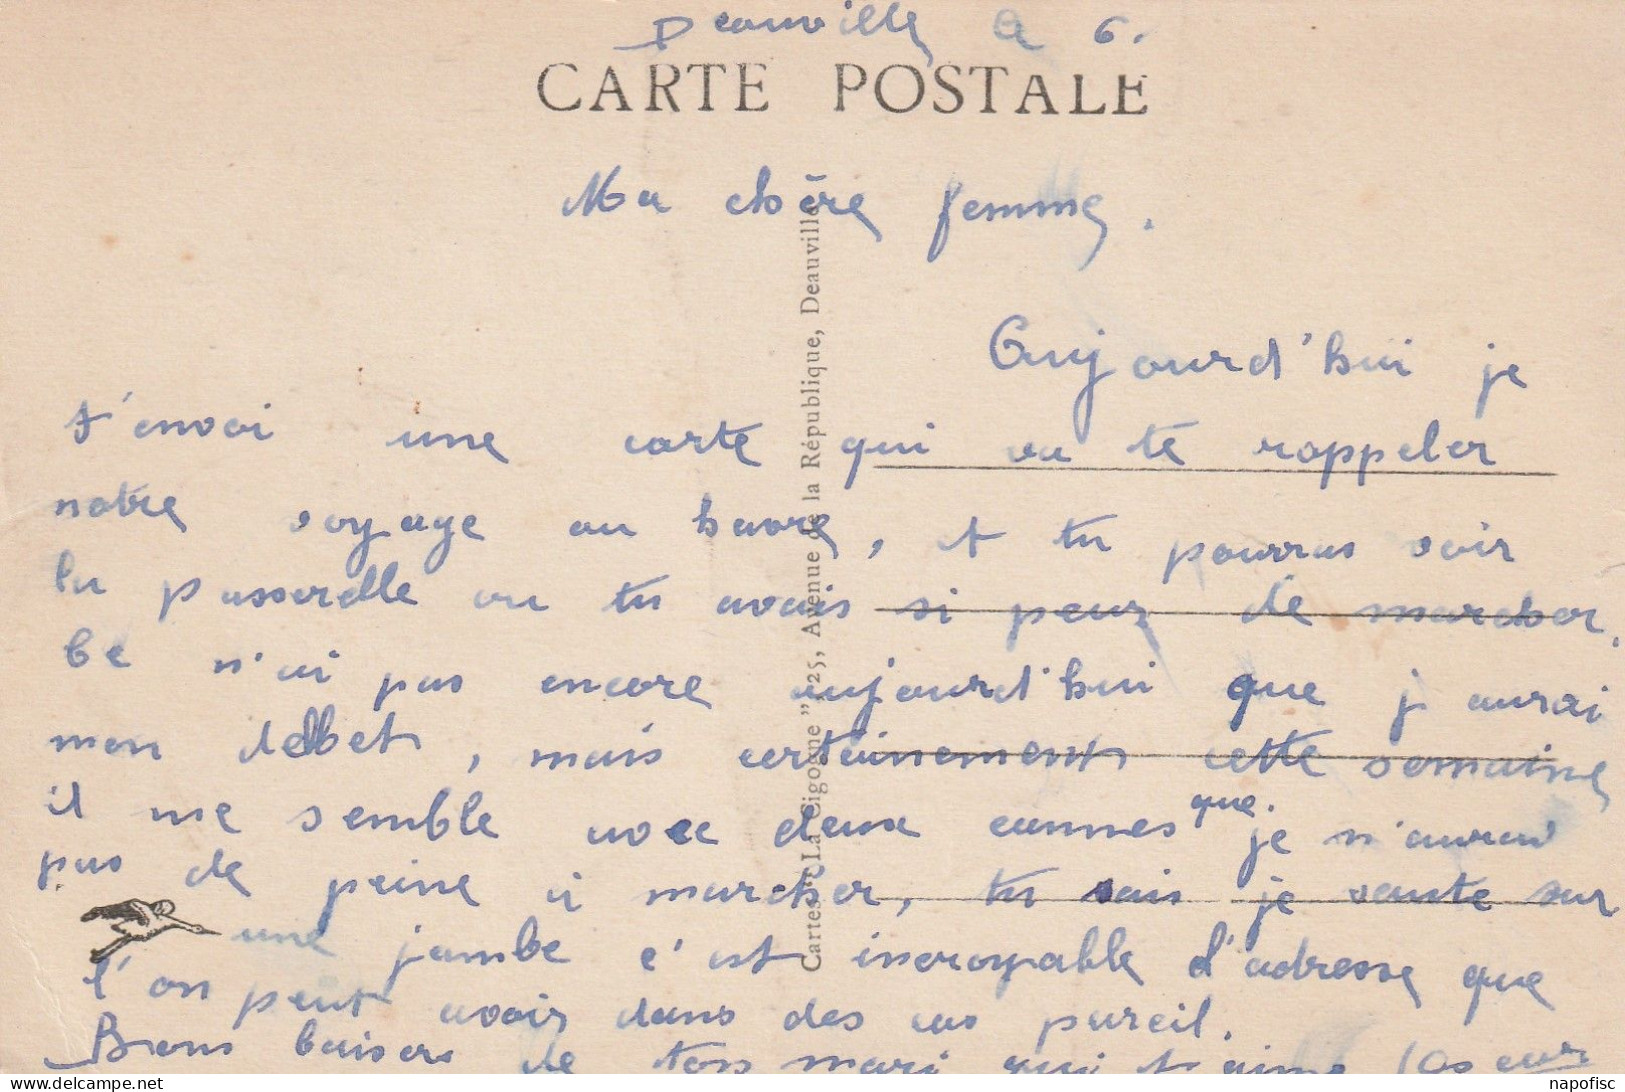 Deauville le 6.
CARTE POSTALE
Ma chère femme.
Aujourd'hui je
t'envoi une carte qui va te rappeler
notre voyage au havre, et tu pourras voir
la passerelle ou tu avais si peur de marcher.
Ce n'ai pas encore aujourd'hui que j aurai
mon debbet, mais certainement cette semaine
il me semble avec deux cannes que. je n'aurai
pas de peine à marcher, tu sais je saute sur
une jambe c'est incroyable d'adresse que
l'on peut avoir dans des cas pareil.
Bons baisers de ton mari qui t'aime
Cartes "La Cigogne" 125, Avenue de la République, Deauville
delcampe.net
napofisc